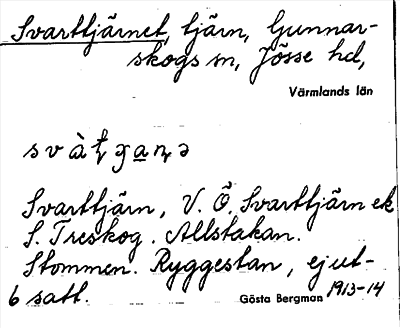 Svarttjärnet, tjärn, Gunnar-
skogs sn, Jösse hd,
Värmlands län
Svarttjärn, V. Ö. Svarttjärn ek
S. Treskog. Allstakan.
Stommen. Ryggestan, ejut-
6 satt.
Gösta Bergman 1913-14